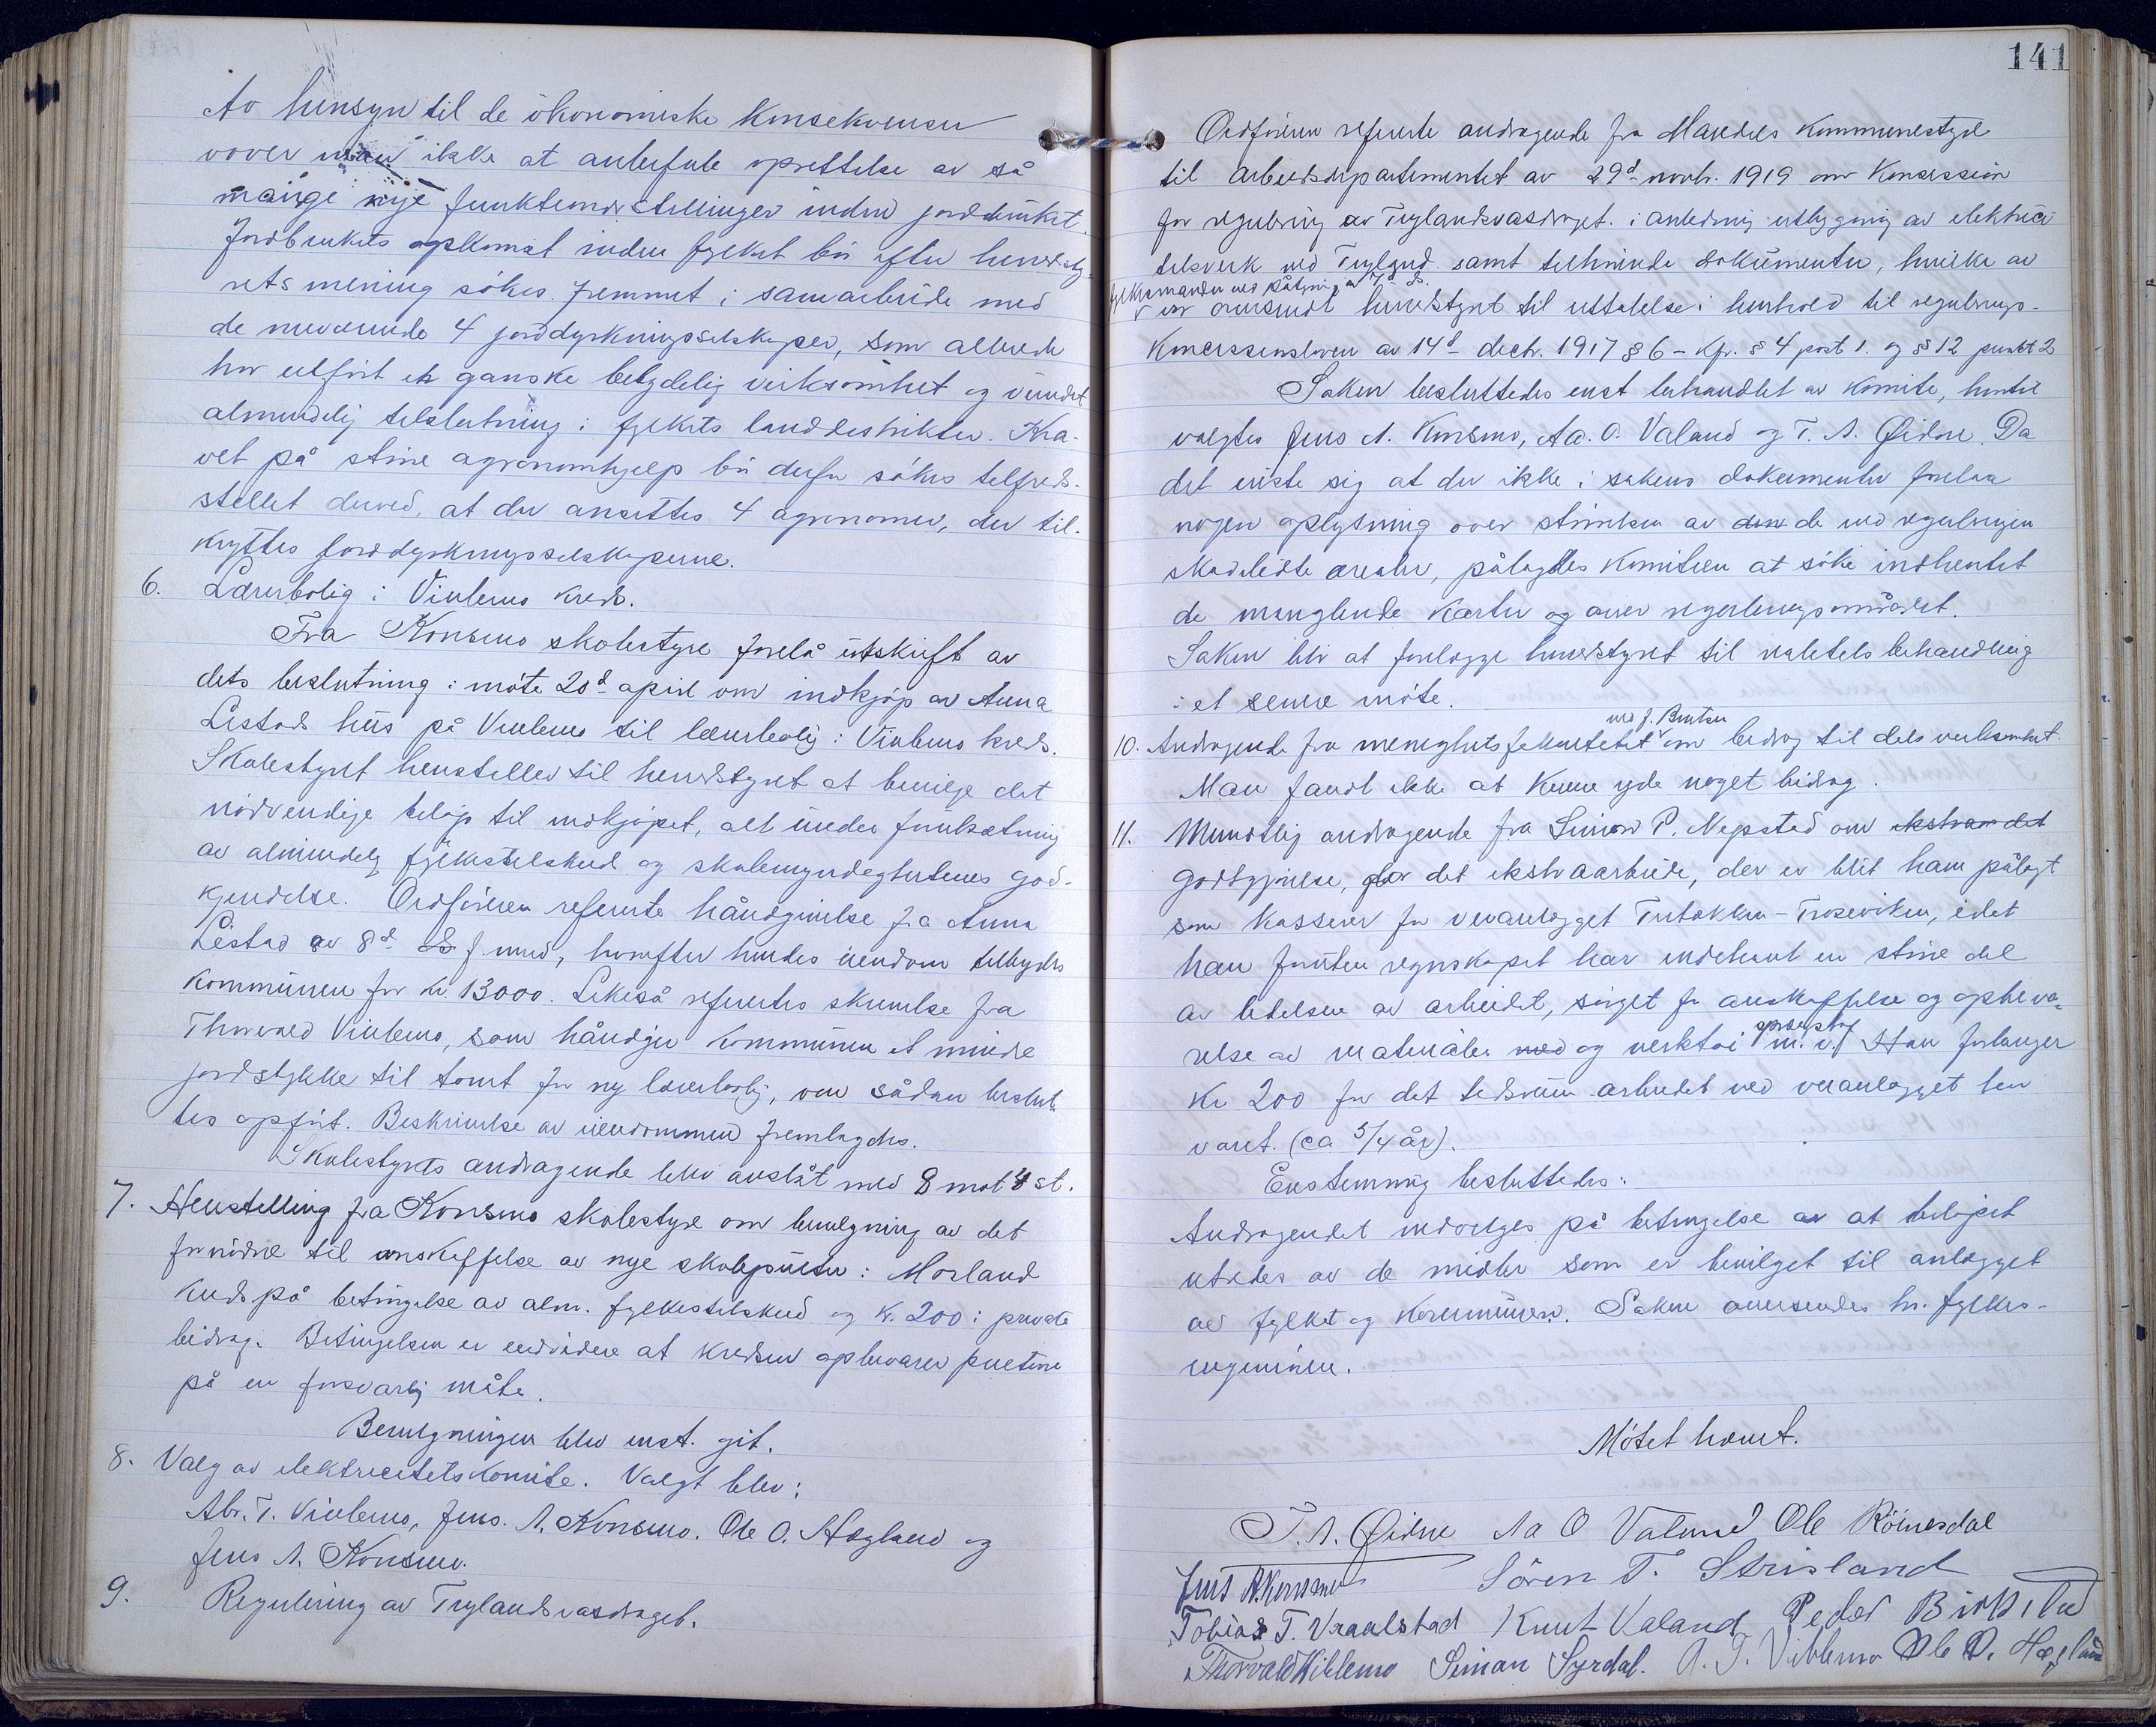 Av hensyn til de ökonomiske konsekvenser
vover man ikke at anbefale oprettelse av så
mange nye funktionærstillinger inden jordbruket.
Jordbrukets opkomst inden fylket bör efter herredsty-
rets mening sökes fremmet i samarbeide med
de nuværende 4 jorddyrkningsselskaper, som allerede
har utfört en ganske betydelig virksomhet og vundet
almindelig tilslutning i fylkets landdistrikter. Kra-
vet på större agronomhjelp bör derfor sökes tilfreds-
stillet derved, at der ansættes 4 agronomer, der til-
knyttes jorddyrkningsselskaperne.
6. Lærerbolig i Viblemo kreds.
Fra Konsmo skolestyre forelå utskrift av
dets beslutning i möte 20d april om indkjöp av Anna
Listads hus på Viblemo til lærerbolig i Viblemo kreds.
Skolestyret henstiller til herredstyret at bevilge det
nödvendige belöp til indkjöpet, alt under forutsætning
av almindelig fylkestilskud og skolemyndigheternes god-
kjendelse. Ordföreren refererte håndgivelse fra Anna
Listad av 8d ds f. mnd, hvorefter hendes eiendom tilbydes
kommunen for kr. 13000. Likeså refereredes skrivelse fra
Thorvald Viblemo, som håndgir kommunen et mindre
jordstykke til tomt for ny lærerbolig, om sådan beslut-
tes opfört. Beskrivelse av eiendommen fremlagdes.
Skolestyrets andragende blev avslåt med 8 mot 4 st.
7. Henstilling fra Konsmo skolestyre om bevilgning av det
fornödne til anskaffelse av nye skolepulter i Mosland
kreds på betingelse av alm. fylkestilskud og kr. 200 i private
bidrag. Betingelsen er endvidere at kredsen opbevarer pultene
på en forsvarlig måte.
Bevilgningen blev enst. git.
8. Valg av elektricitetskomite. Valgt blev:
Abr. T. Viblemo, Jens. A. Konsmo. Ole O. Høgland og
Jens A. Konsmo.
9. Regulering av Trylandsvasdraget.
141
Ordföreren refererte andragende fra Mandals kommunestyre
til Arbeidsdepartementet av 29d novbr. 1919 om Konsession
for regulering av Trylandsvasdraget i anledning utbygning av elektrici
tetsverk ved Tryland samt tilhörende dokumenter, hvilke av
fylkesmanden ved påtegning av
er oversendt herredstyret til uttalelse i henhold til regulerings-
Koncessionsloven av 14d dectr. 1917 § 6 - kfr. § 4 post 1. og § 12 punkt 2
Saken besluttedes enst behandlet av komite, hvortil
valgtes Jens A. Konsmo, Aa. O. Valand og T. A. Øidne. Da
det viste sig at der ikke i sakens dokumenter forelaa
nogen oplysning over störrelsen av den de ved reguleringen
skadelidte arealer, pålagdes Komiteen at söke indhentet
de manglende karter og over reguleringsområdet.
Saken blir at forlægge herredstyret til realitetsbehandling
i et senere möte.
ved J. Bentsen
10. Andragende fra menighetsfakultetet om bidrag til dets virksomhet.
Man fandt ikke at kunne yde noget bidrag.
11. Mundtlig andragende fra Simon P. Nepsted om ekstra det
godtgjørelse, for det ekstraarbeide, der er blit ham pålagt
som kasserer for veianlægget Tutakken - Troseviken, idet
han foruten regnskapet har indehavt en större del
av ledelsen av arbeidet, sörget for anskaffelse og opbeva-
relse av materialer med og verktöi sprængstof m.v. Han forlanger
kr 200 for det tidsrum arbeidet ved veianlægget har
varet. (ca 5/4 år).
Enstemmig besluttedes:
Andragendet indvilges på betingelse av at belöpet
utredes av de midler som er bevilget til anlægget
av fylket og kommunen. Saken oversendes hr. fylkes-
ingeniören.
Mötet hævet.
T. A. Øidne Aa O Valand Ole Röinesdal
Jens A. Konsmo Sören T. Strisland
Tobias T. Vraalstad Knut Valand Peder Birkeland
Thorvald Viblemo Simon Syrdal. A. T. Viblemo Ole O. Høgland